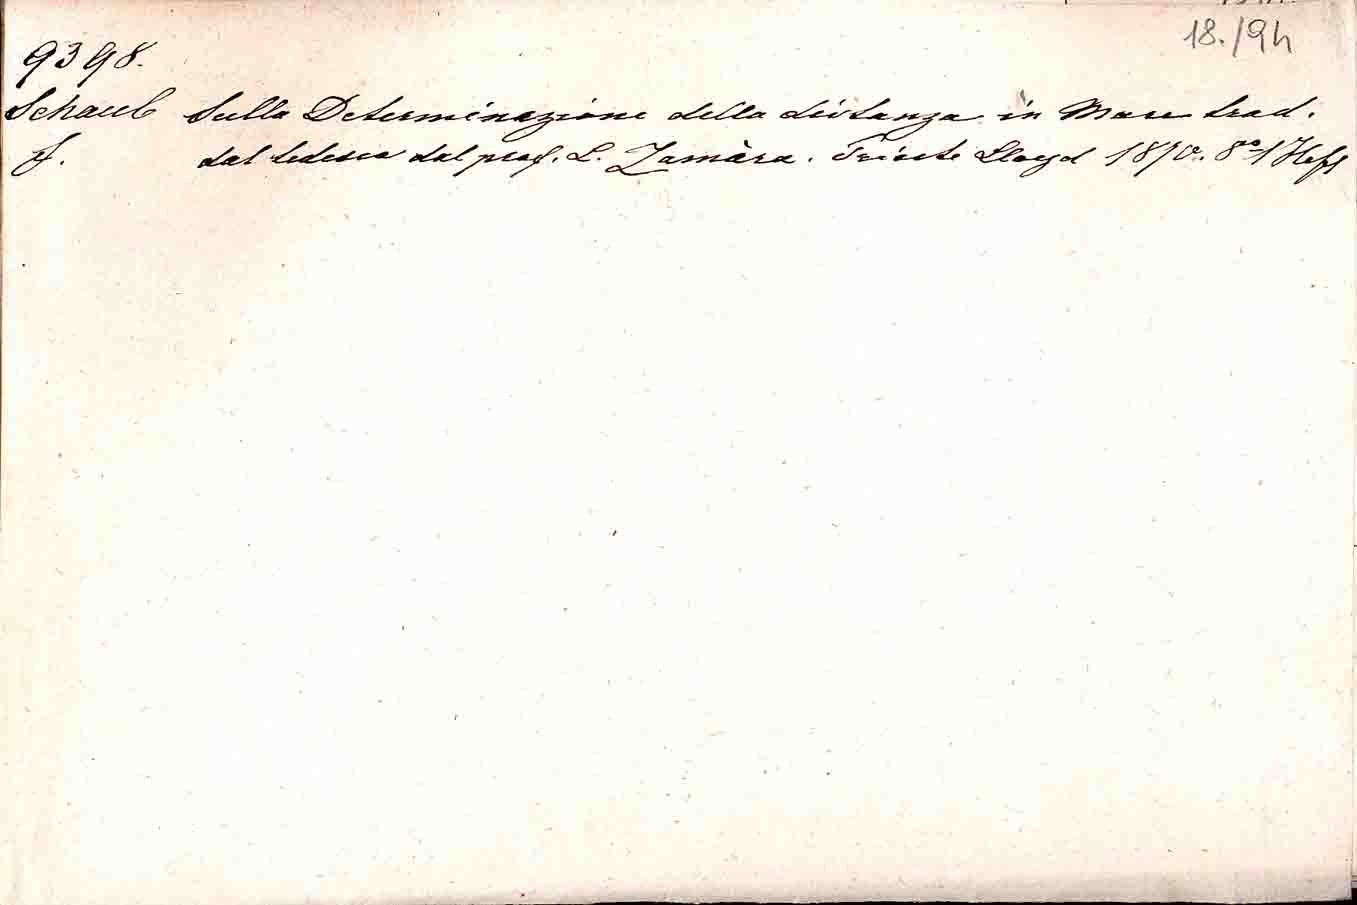 18./94
9398.
Schaub Sulla Determinazione della distanza in Mare trad.
F. dal tedesco dal prof. L. Zamàra. Trieste Lloyd 1870. 8° 1 Heft